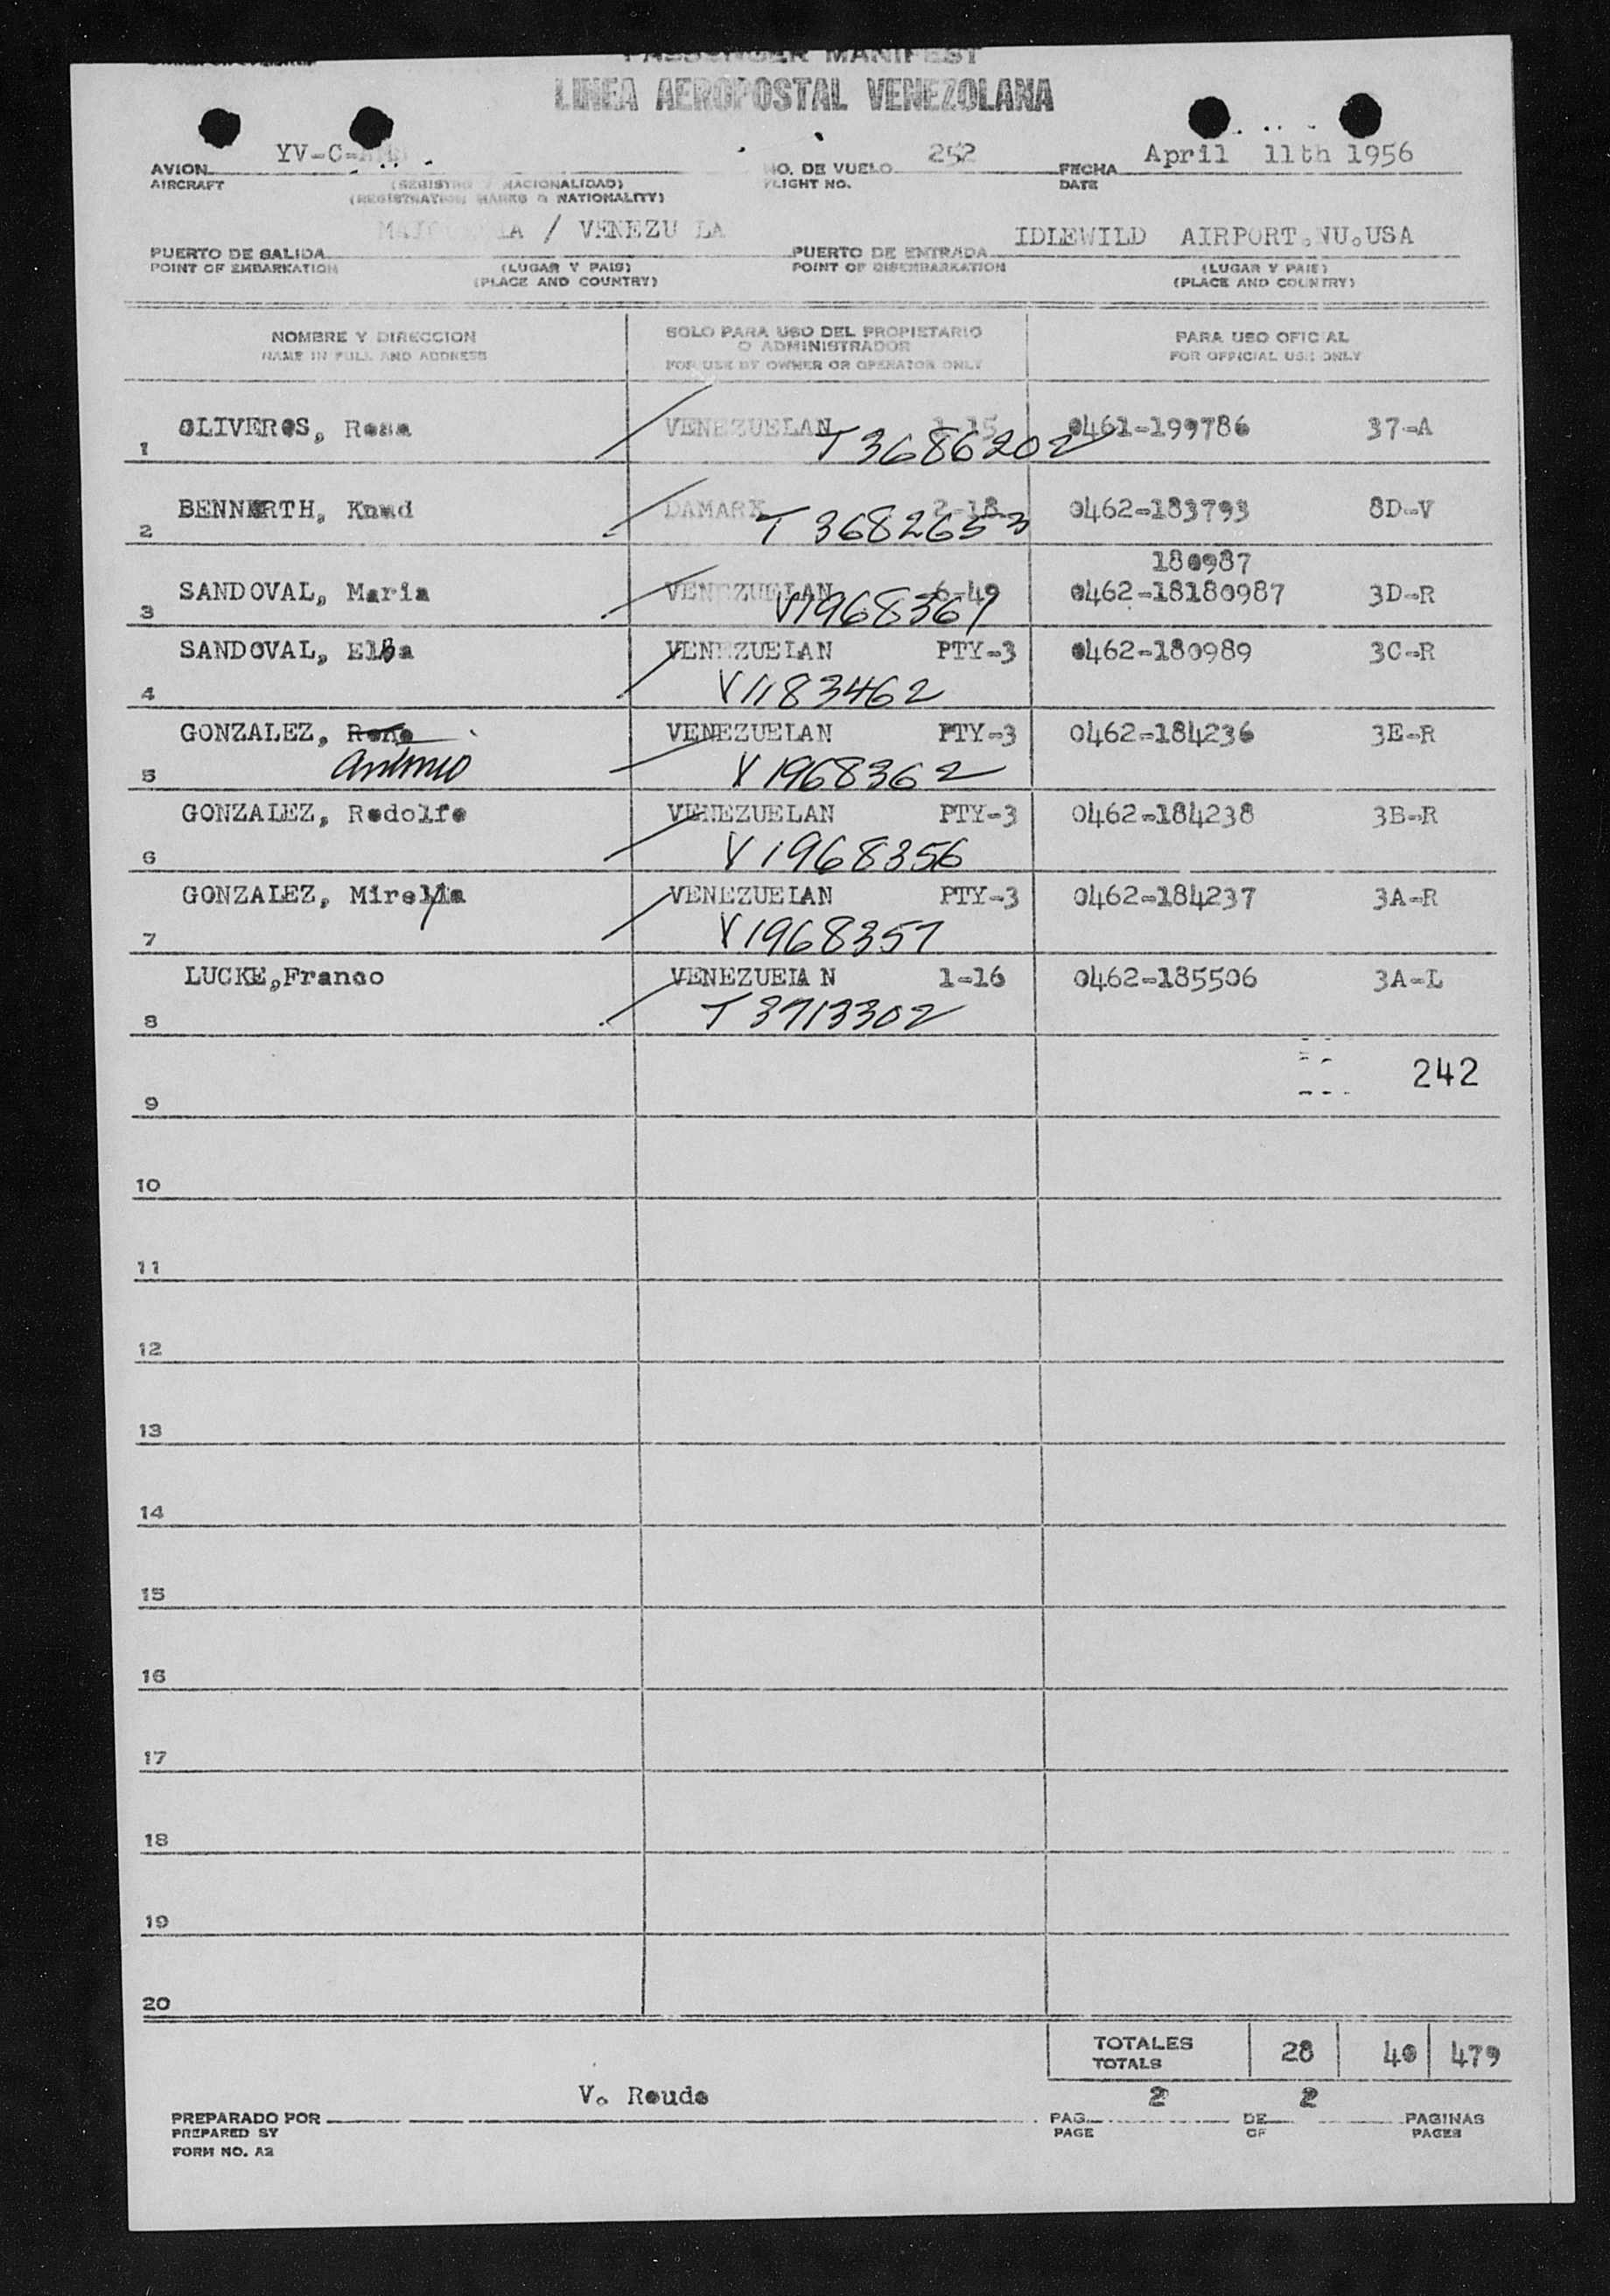 PASSENGER MANIFEST
LINEA AEROPOSTAL VENEZOLANA
AVION YV-C- NO. DE VUELO 252 FECHA April 11th 1956
AIRCRAFT (REGISTRO Y NACIONALIDAD) FLIGHT NO. DATE
(REGISTRATION MARKS & NATIONALITY)
PUERTO DE SALIDA / VENEZU LA PUERTO DE ENTRADA IDLEWILD AIRPORT.NU.USA
POINT OF EMBARKATION (LUGAR Y PAIS) POINT OF DISEMBARKATION (LUGAR Y PAIS)
(PLACE AND COUNTRY) (PLACE AND COUNTRY)
NOMBRE Y DIRECCION SOLO PARA USO DEL PROPIETARIO PARA USO OFICIAL
O ADMINISTRADOR
NAME IN FULL AND ADDRESS FOR USE BY OWNER OR OPERATOR ONLY FOR OFFICIAL USE ONLY
1 OLIVEROS, Rosa VENEZUELAN 1-15 0461-199786 37-A
T 3686202
2 BENNERTH, Knud DAMARK 2-18 0462-183793 8D-V
T 3682653
180987
3 SANDOVAL, Maria VENEZUELAN 6-49 0462-18180987 3D-R
V1968361
4 SANDOVAL, Elba VENEZUELAN PTY-3 0462-180989 3C-R
V1183462
GONZALEZ, Rene VENEZUELAN PTY-3 0462-184236 3E-R
5 Antonio V 1968362
GONZALEZ, Rodolfo VENEZUELAN PTY-3 0462-184238 3B-R
6 V 1968356
GONZALEZ, Mirella VENEZUELAN PTY-3 0462-184237 3A-R
7 V1968357
LUCKE,Franco VENEZUELA N 1-16 0462-185506 3A-L
8 T 3713302
242
9
10
11
12
13
14
15
16
17
18
19
20
TOTALES 28 40 479
TOTALS
V. Roude 2 2
PREPARADO POR PAG. DE PAGINAS
PREPARED BY PAGE OF PAGES
FORM NO. A2